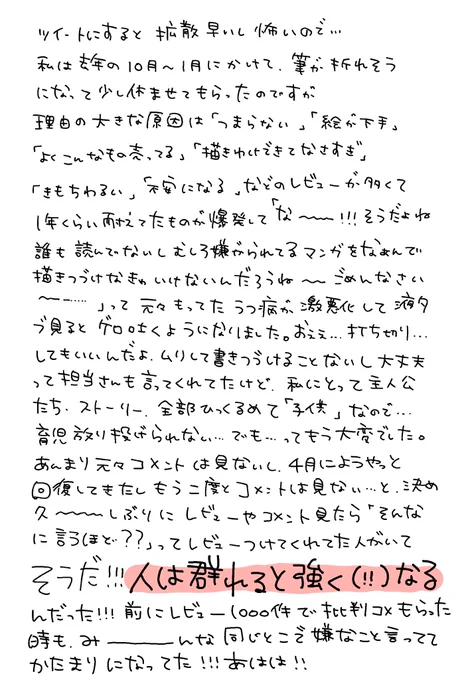 ツイートにすると 拡散 早いし 怖いので…
私は去年の10月〜1月にかけて、筆が折れそう
になって少し休ませてもらったのですが
理由の大きな原因は「つまらない」「絵が下手」
「よくこんなもの売ってる」「描きわけできてなさすぎ」
「きもちわるい」「不安になる」などのレビューが多くて
1年くらい耐えてたものが爆発して「な〜〜!!! そうだよね
誰も読んでないしむしろ嫌がられてるマンガをなぁんで
描きつづけなきゃいけないんだろうね〜〜ごめんなさい
〜〜……」って 元々もってたうつ病が激悪化して液タ
ブ見ると ゲロ吐くようになりました。おえぇ…打ち切り…
してもいいんだよ、ムリして書きつづけることないし大丈夫
って担当さんも言ってくれてたけど、私にとって主人公
たち、ストーリー、全部ひっくるめて「子供」なので…
育児放り投げられない…でも…ってもう大変でした。
あんまり元々コメントは見ないし、4月にようやっと
回復してきたしもう二度とコメントは見ない…と、決め
久〜〜〜しぶりに レビューやコメント見たら「そんな
に言うほど??」ってレビューつけてくれてた人がいて
そうだ!!! 人は群れると強く(!!)なる
んだった!!! 前にレビュー1000件で批判コメもらった
時も、み〜〜〜んな同じとこで嫌なこと言ってて
かたまりになってた!!! あはは!!